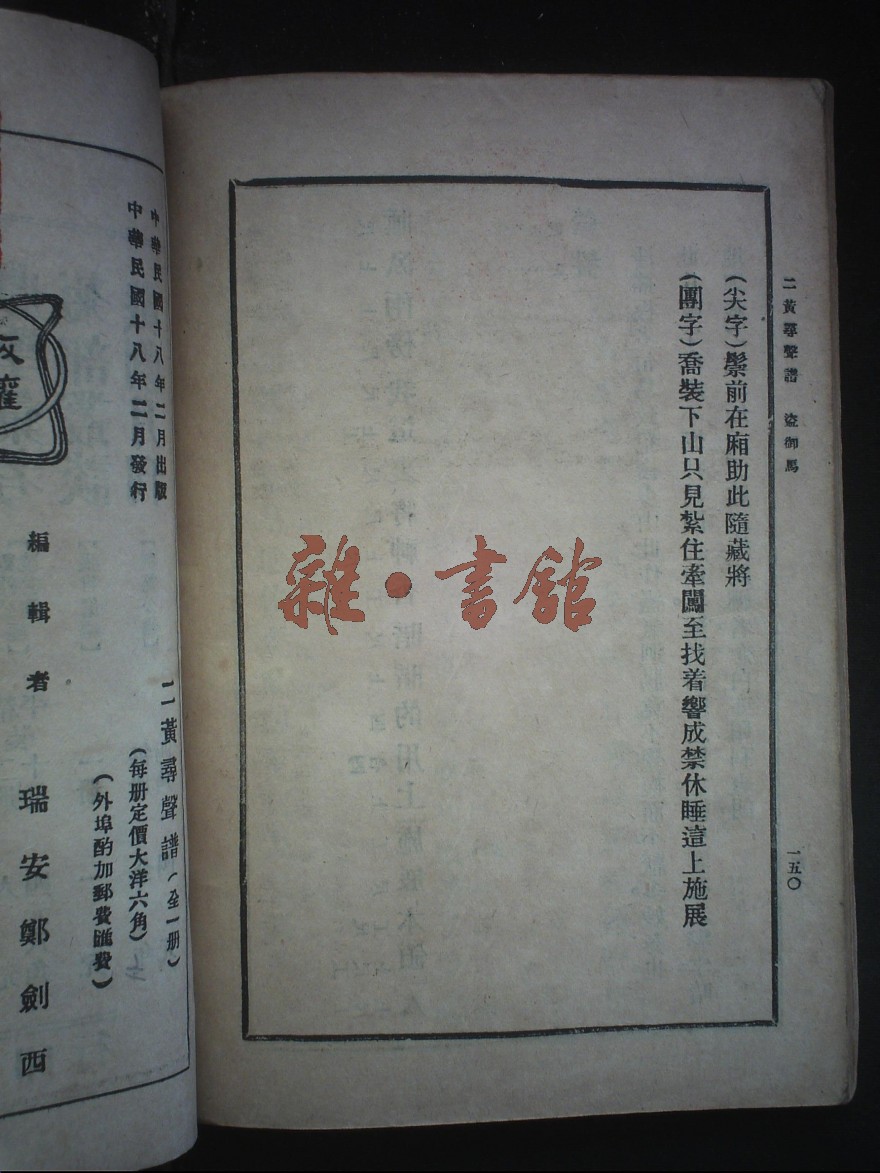 二黃尋聲譜 盜御馬
一五〇
(尖字)鬃前在廂助此隨藏將
(團字)喬裝下山只見紮住牽闖至找着響成禁休睡這上施展
雜·書館
二黃尋聲譜(全一册)
(每册定價大洋六角)
(外埠酌加郵費匯費)
中華民國十八年二月出版
中華民國十八年二月發行
編輯者 瑞安鄭劍西